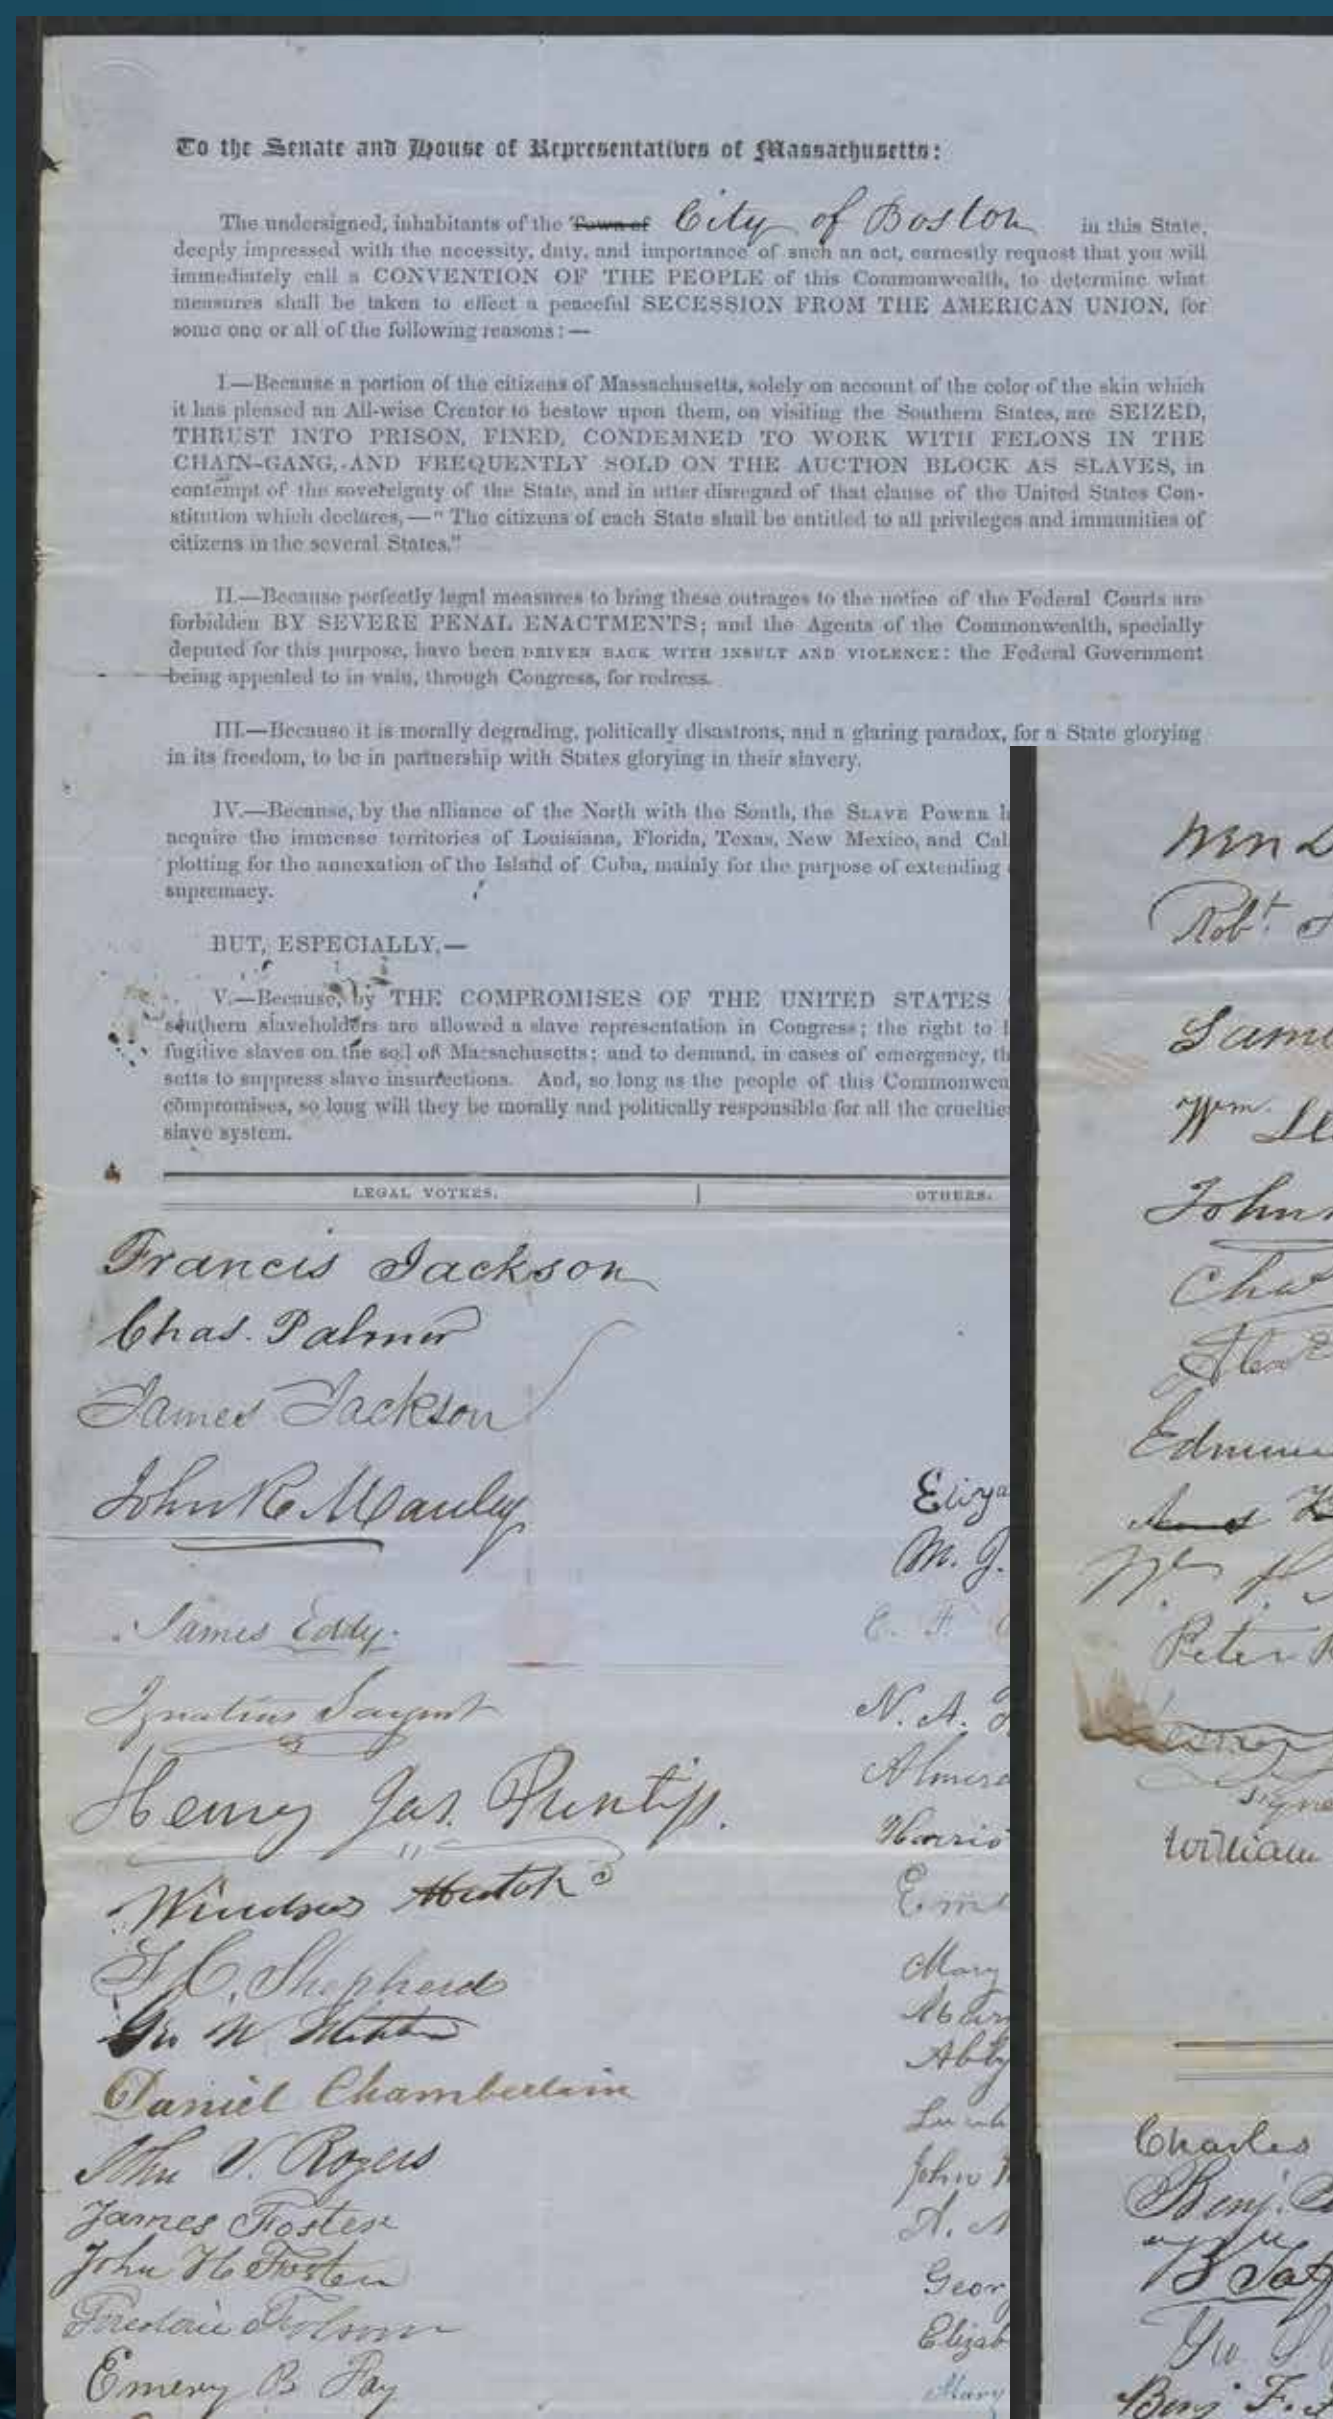 To the Senate and House of Representatives of Massachusetts:
The undersigned, inhabitants of the Town of City of Boston in this State,
deeply impressed with the necessity, duty, and importance of such an act, earnestly request that you will
immediately call a CONVENTION OF THE PEOPLE of this Commonwealth, to determine what
measures shall be taken to effect a peaceful SECESSION FROM THE AMERICAN UNION, for
some one or all of the following reasons:—
I.—Because a portion of the citizens of Massachusetts, solely on account of the color of the skin which
it has pleased an All-wise Creator to bestow upon them, on visiting the Southern States, are SEIZED,
THRUST INTO PRISON, FINED, CONDEMNED TO WORK WITH FELONS IN THE
CHAIN-GANG, AND FREQUENTLY SOLD ON THE AUCTION BLOCK AS SLAVES, in
contempt of the sovereignty of the State, and in utter disregard of that clause of the United States Con-
stitution which declares,—"The citizens of each State shall be entitled to all privileges and immunities of
citizens in the several States."
II.—Because perfectly legal measures to bring these outrages to the notice of the Federal Courts are
forbidden BY SEVERE PENAL ENACTMENTS; and the Agents of the Commonwealth, specially
deputed for this purpose, have been DRIVEN BACK WITH INSULT AND VIOLENCE: the Federal Government
being appealed to in vain, through Congress, for redress.
III.—Because it is morally degrading, politically disastrous, and a glaring paradox, for a State glorying
in its freedom, to be in partnership with States glorying in their slavery.
IV.—Because, by the alliance of the North with the South, the SLAVE POWER h
acquire the immense territories of Louisiana, Florida, Texas, New Mexico, and Cal
plotting for the annexation of the Island of Cuba, mainly for the purpose of extending
supremacy.
BUT, ESPECIALLY,—
V.—Because, by THE COMPROMISES OF THE UNITED STATES
southern slaveholders are allowed a slave representation in Congress; the right to
fugitive slaves on the soil of Massachusetts; and to demand, in cases of emergency, th
setts to suppress slave insurrections. And, so long as the people of this Commonwea
compromises, so long will they be morally and politically responsible for all the cruelties
slave system.
LEGAL VOTERS. OTHERS.
Francis Jackson
Chas. Palmer
James Jackson
John R. Manley Eliza
M. J.
James Eddy. E. F.
Ignatius Sargent N. A.
Henry Jas. Prentiss. Almira
Harrio
Windsor Hatch
Mary
Shepherd
Geo W
Abby
Daniel Chamberlain
John V. Rogers John
James Foster A.
John H Foster Geor
Frederic Folsom Elizab
Emery B Fay Mary
Wm
Robt.
Same
Wm
John
Chas
Edmun
Wm
Peter
William
Charles
Benj.
B
Geo
Benj. F.